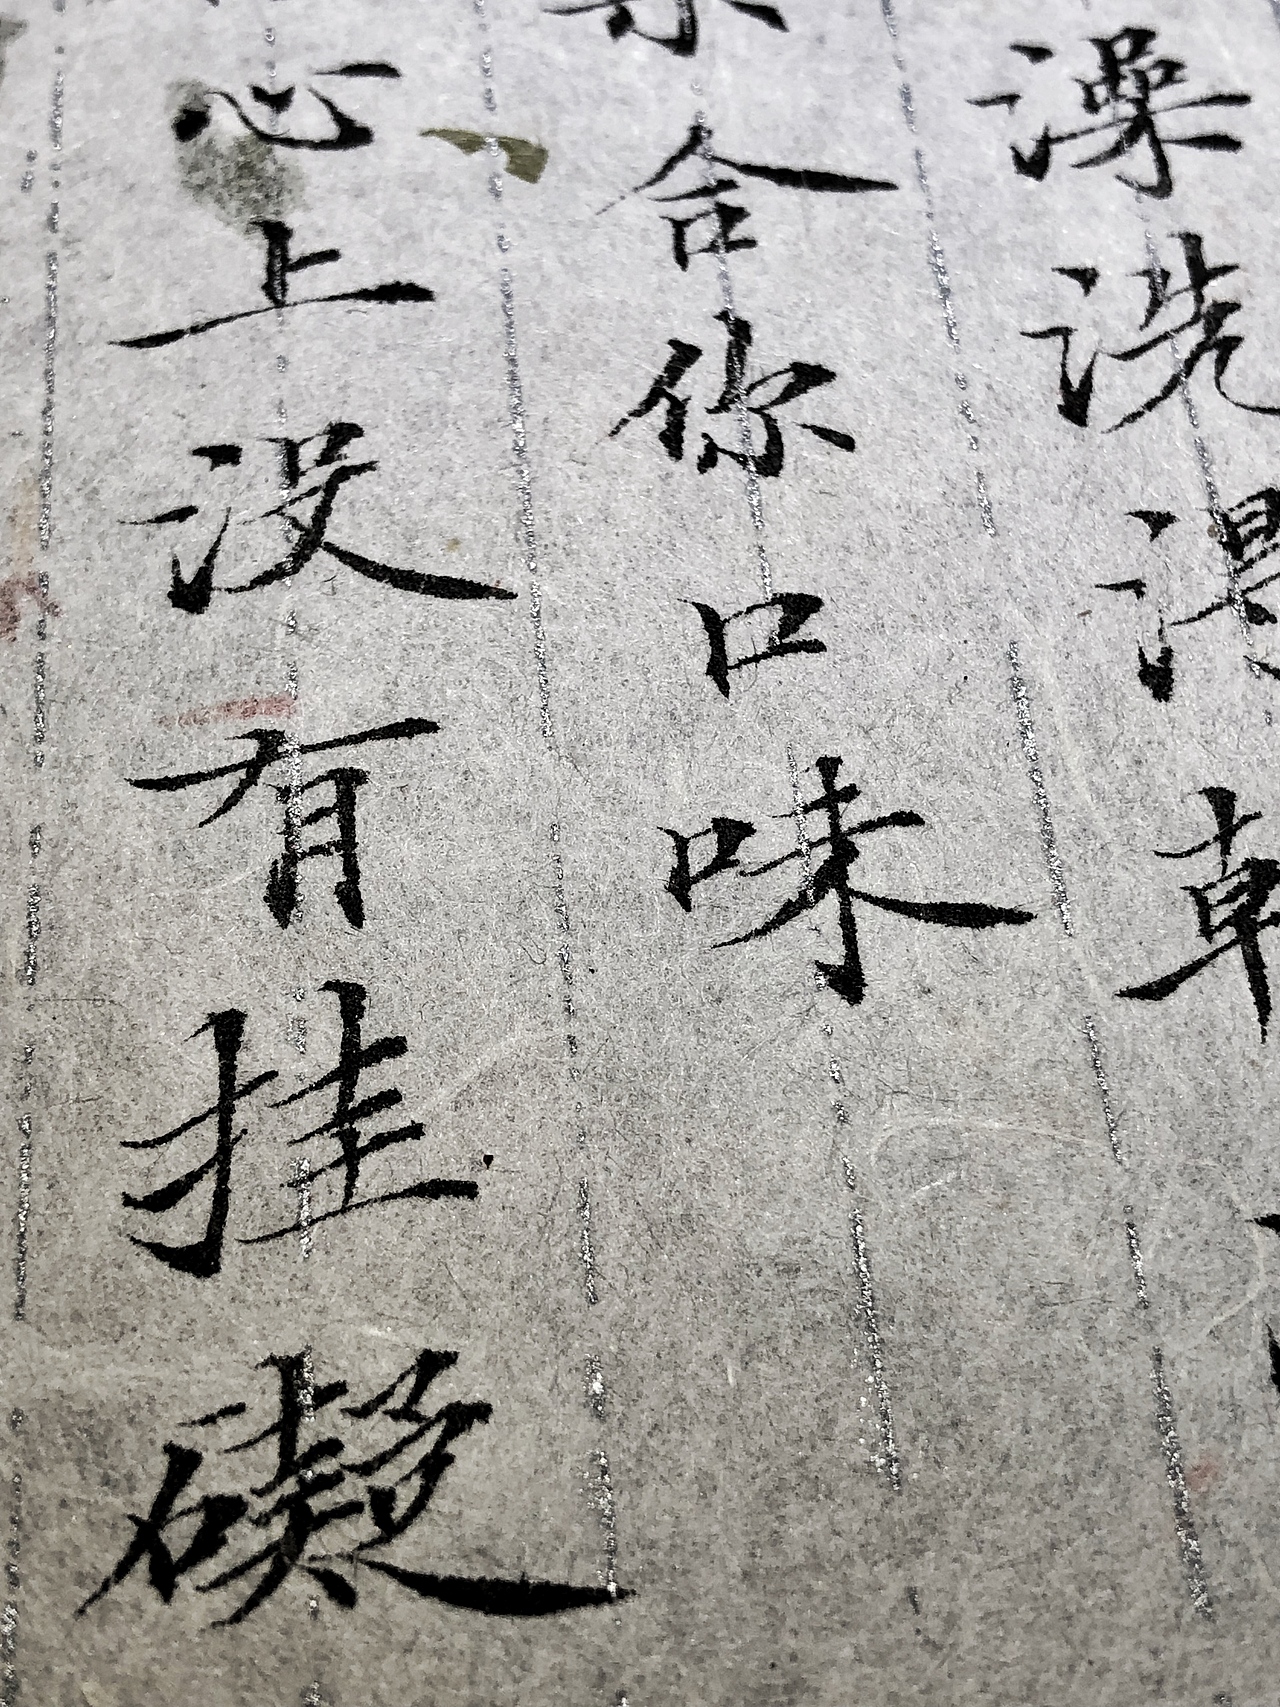 澡洗
合你口味
心上没有挂礙